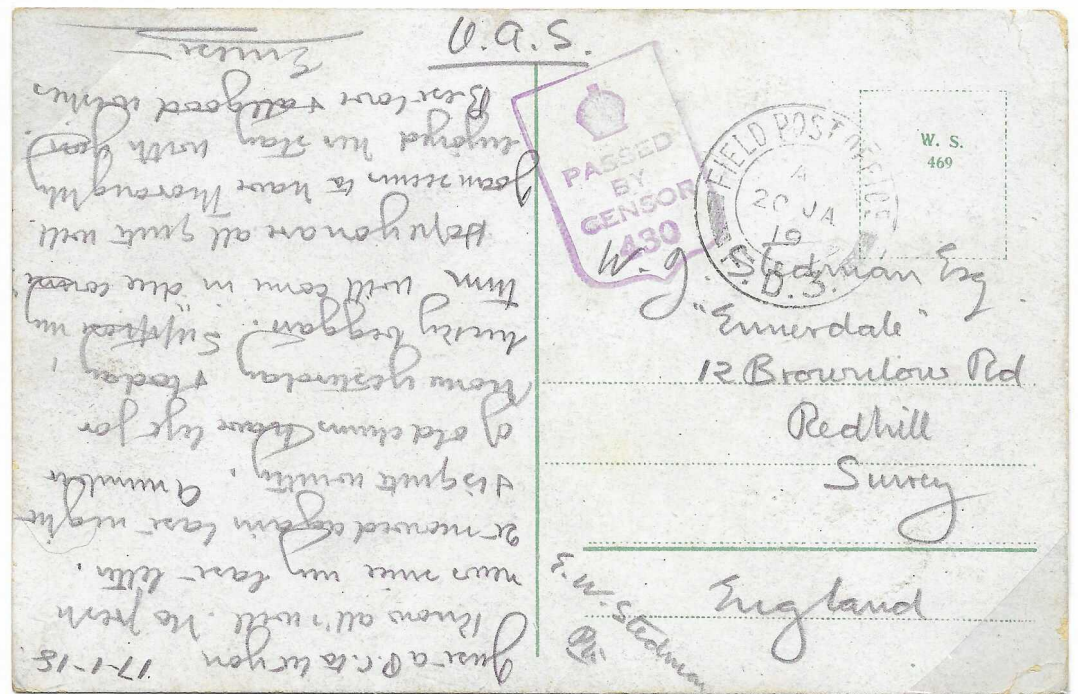 O.A.S.
PASSED
BY
CENSOR
430
FIELD POST OFFICE
4
20 JA
19
D.3.
W. S.
469
W. J. Stedman Esq
"Ennerdale"
12 Brownlow Rd
Redhill
Surrey
England
E. W. Stedman
Pte
17-1-18
Just a P.C. to let you
know all's well. No fresh
news since my last letter.
It snowed again last night
& is quite wintry. A number
of old chums have left for
home yesterday & today,
lucky beggars. Suppose my
turn will come in due course.
Hope you are all quite well
Joan seems to have thoroughly
enjoyed her stay with you
Best love & all good wishes
Ernest